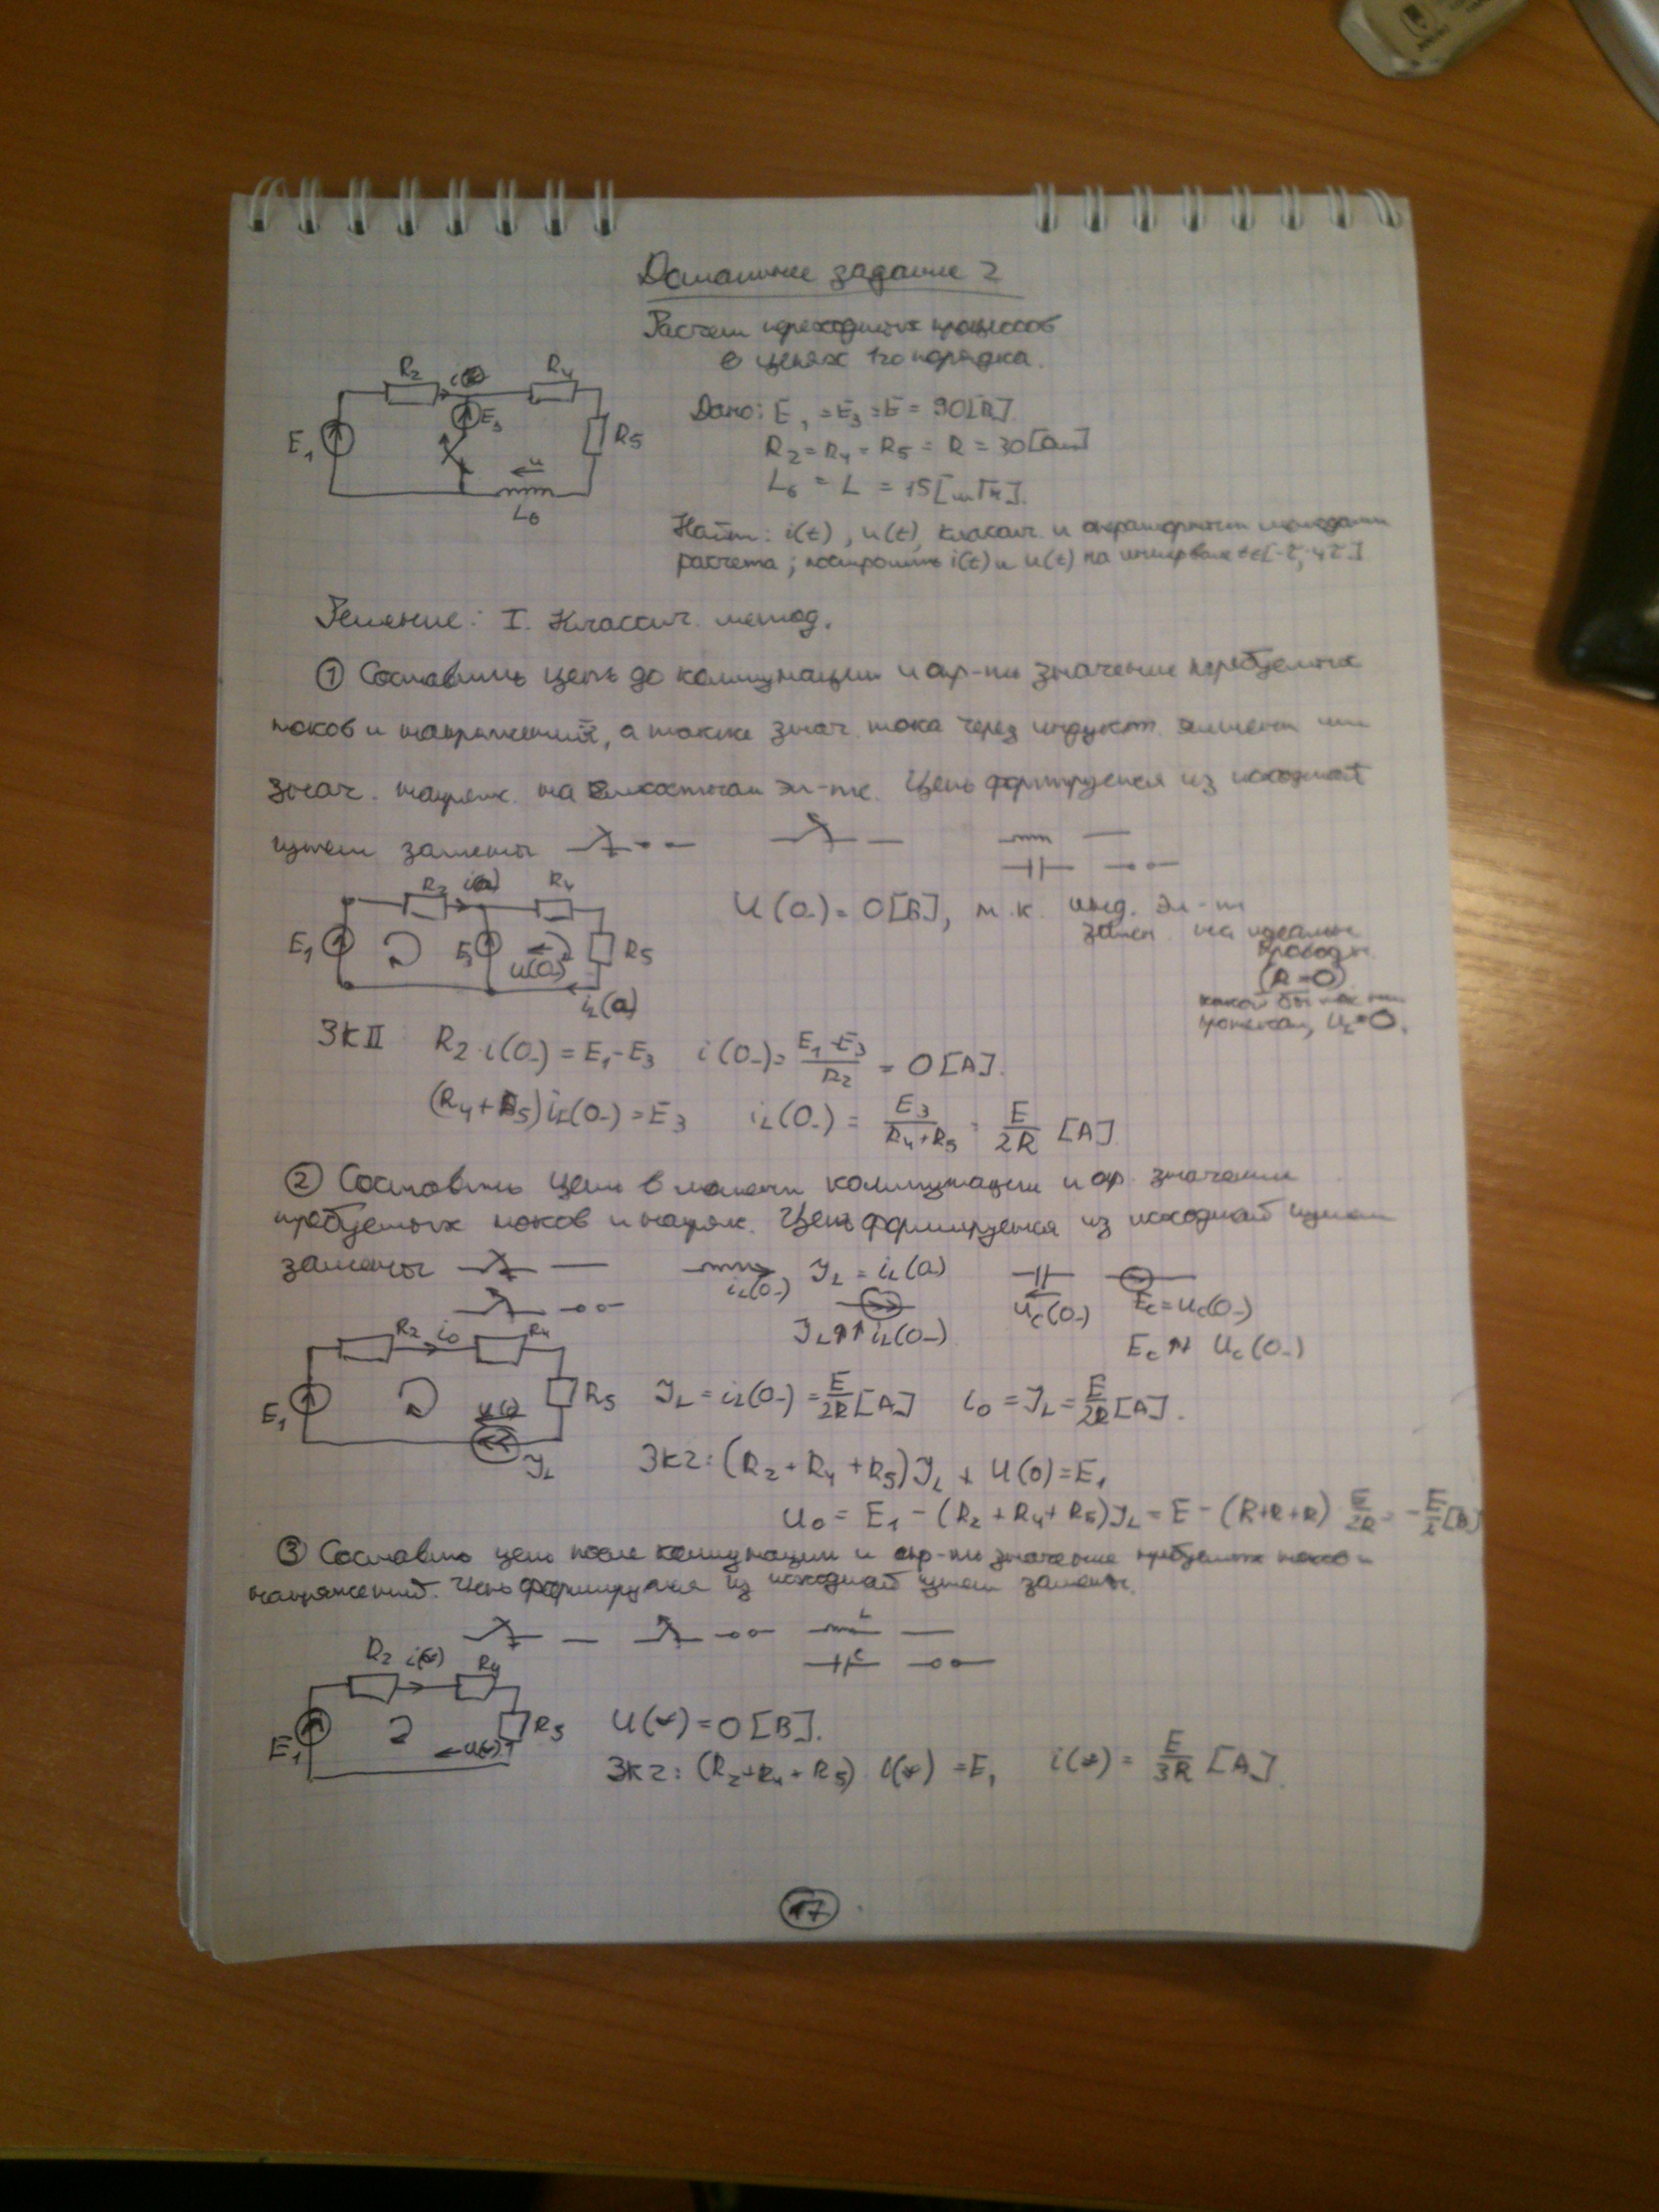 Домашнее задание 2
Расчет переходных процессов
в цепях 1го порядка.
R₂ i R₄
E₁ E₃ R₅
u
L₆
Дано: E₁ = E₃ = E = 90[В]
R₂ = R₄ = R₅ = R = 30[Ом]
L₆ = L = 15[мГн].
Найти: i(t), u(t), классич. и операторным методами
расчета; построить i(t) и u(t) на интервале t∈[-τ; 4τ]
Решение: I. Классич. метод.
① Составить цепь до коммутации и опр-ть значение требуемых
токов и напряжений, а также знач. тока через индукт. элемент или
знач. напряж. на емкостном эл-те. Цепь формируется из исходной
путем замены
R₂ i(0-) R₄
E₁ E₃ u(0-) R₅
iL(0-)
U(0-) = 0[В], т.к. инд. эл-т
замен. на идеальн.
проводн.
(R=0)
какой бы ток ни
протекал, UL=0.
ЗКII R₂·i(0-) = E₁-E₃ i(0-) = (E₁-E₃)/R₂ = 0[А].
(R₄+R₅)iL(0-) = E₃ iL(0-) = E₃/(R₄+R₅) = E/2R [А].
② Составить цепь в момент коммутации и опр. значения
требуемых токов и напряж. Цепь формируется из исходной путем
замены iL(0-) JL = iL(0-) uC(0-) EC = uC(0-)
JL↑↑iL(0-) EC ↑↓ UC(0-)
R₂ i₀ R₄
E₁ u(0) R₅
JL
JL = iL(0-) = E/2R [А] i₀ = JL = E/2R [А].
ЗК2: (R₂+R₄+R₅)JL + U(0) = E₁
U₀ = E₁ - (R₂+R₄+R₅)JL = E - (R+R+R) E/2R = -E/2 [В]
③ Составить цепь после коммутации и опр-ть значение требуемых токов и
напряжений. Цепь формируется из исходной путем замены.
L
C
R₂ i(∞) R₄
E₁ u(∞) R₅
U(∞) = 0[В].
ЗК2: (R₂+R₄+R₅) i(∞) = E₁ i(∞) = E/3R [А].
17